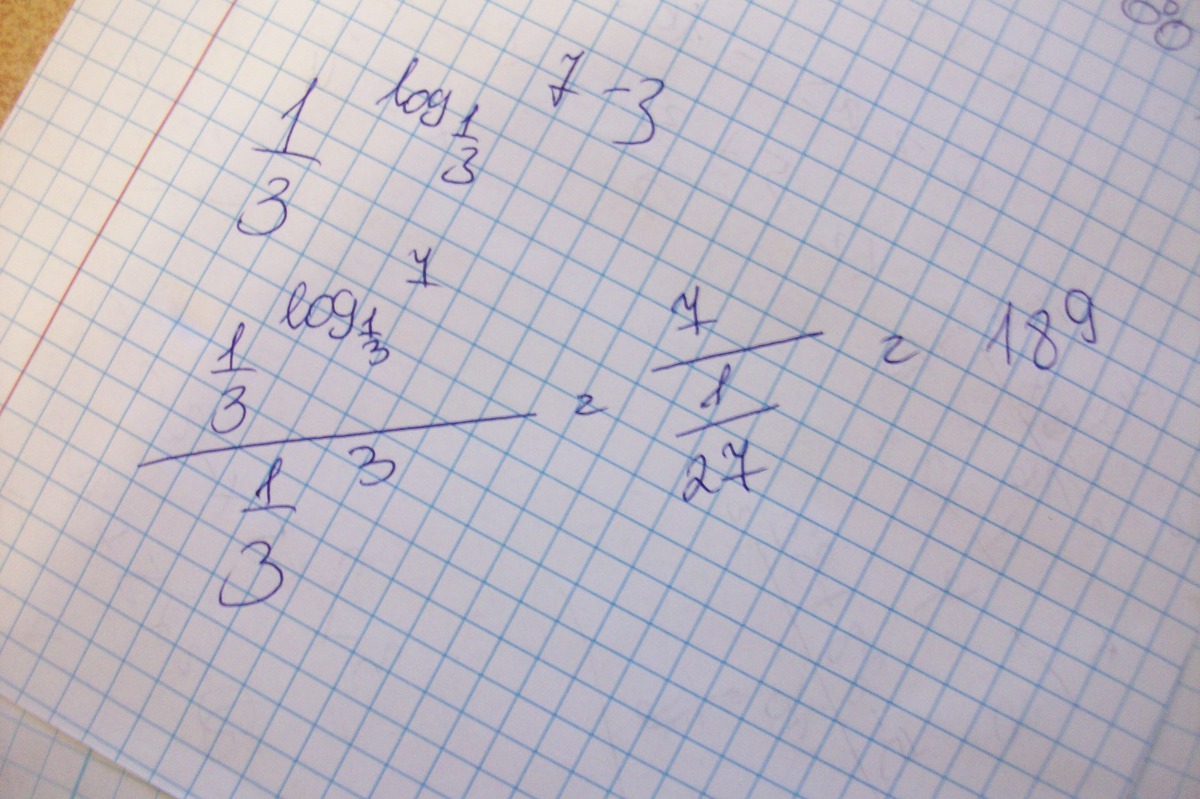 1/3 log 1/3 7 - 3
1/3 log 1/3 7 / 1/3 3 = 7 / 1/27 = 189